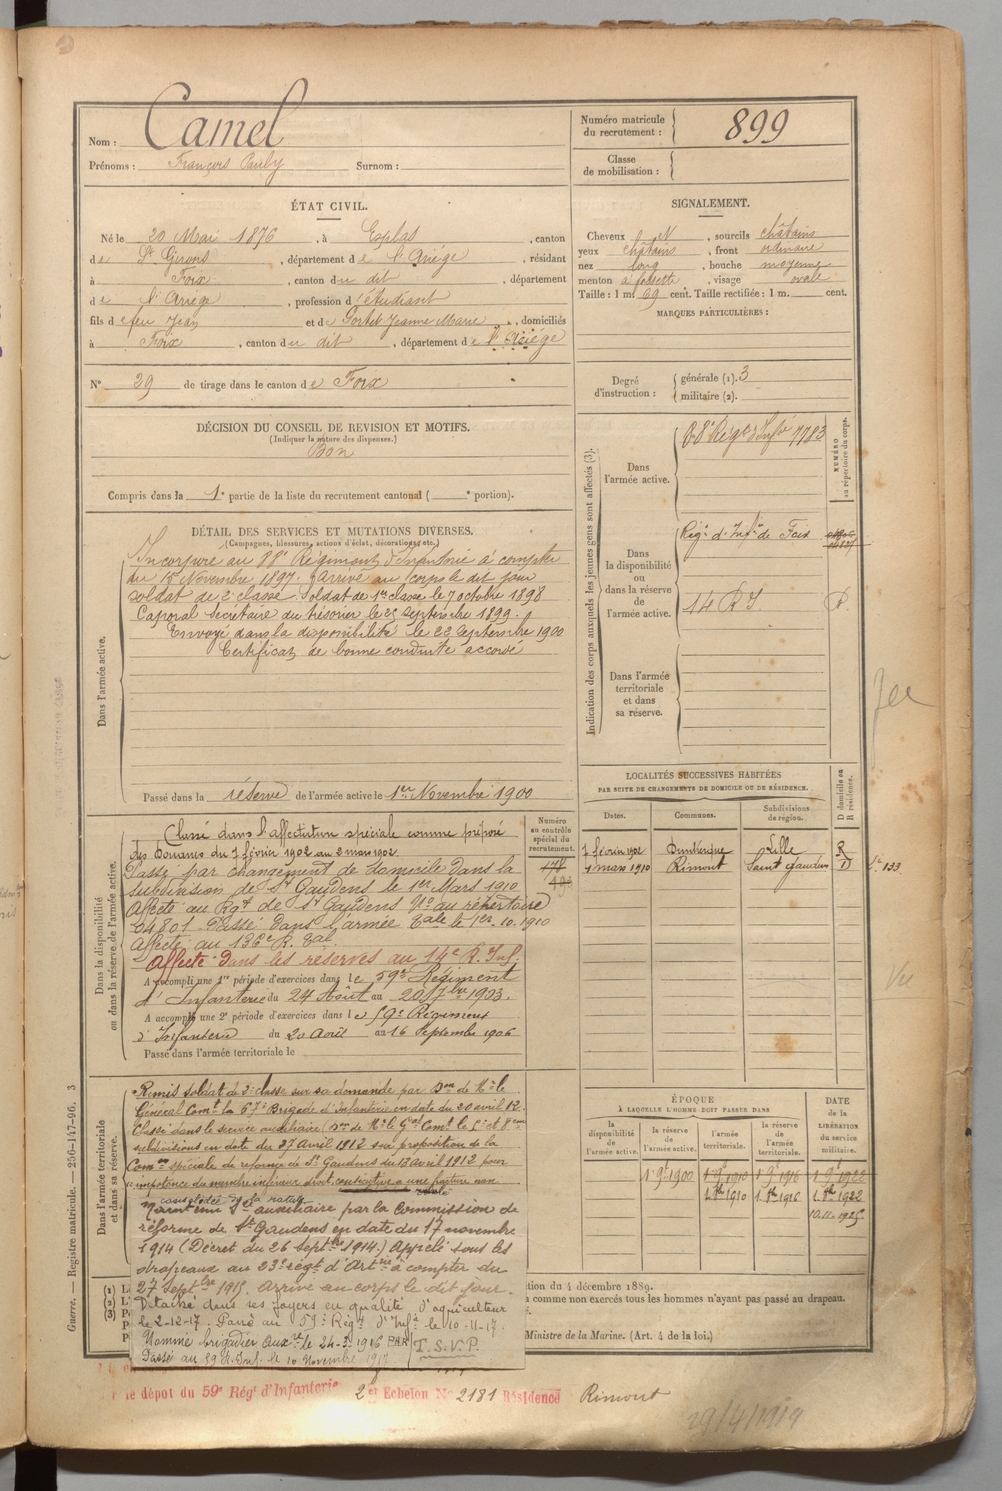 Nom : Camel
Prénoms : François Surnom :
Numéro matricule du recrutement : 899
Classe de mobilisation :
ÉTAT CIVIL.
Né le 20 Mai 1876, à Esplas, canton
de St Girons, département de l'Ariège, résidant
à Foix, canton du dit, département
de l'Ariège, profession d'étudiant
fils de feu Jean et de Jeanne Marie, domiciliés
à Foix, canton du dit, département de l'Ariège
N° 29 de tirage dans le canton de Foix
SIGNALEMENT.
Cheveux , sourcils châtains
yeux châtains, front ordinaire
nez long, bouche moyenne
menton à fossette, visage ovale
Taille : 1 m. 69 cent. Taille rectifiée : 1 m. cent.
MARQUES PARTICULIÈRES :
Degré d'instruction : générale (1). 3
militaire (2).
DÉCISION DU CONSEIL DE REVISION ET MOTIFS.
(Indiquer la nature des dispenses.)
Bon
Compris dans la 1e partie de la liste du recrutement cantonal ( e portion).
DÉTAIL DES SERVICES ET MUTATIONS DIVERSES.
(Campagnes, blessures, actions d'éclat, décorations, etc.)
Dans l'armée active.
Incorporé au 88e Régiment d'Infanterie à compter
du 15 Novembre 1897. Arrivé au corps le dit jour
soldat de 2e classe. Soldat de 1re classe le 7 octobre 1898
Caporal Secrétaire du trésorier le 25 septembre 1899.
Envoyé dans la disponibilité le 22 Septembre 1900
Certificat de bonne conduite accordé
Passé dans la réserve de l'armée active le 1er Novembre 1900
Indication des corps auxquels les jeunes gens sont affectés (3).
NUMÉRO au répertoire du corps.
Dans l'armée active.
88e Régt d'Infie 7783
Dans la disponibilité ou dans la réserve de l'armée active.
Régt d'Infie de Foix
14 R I
Dans l'armée territoriale et dans sa réserve.
LOCALITÉS SUCCESSIVES HABITÉES
PAR SUITE DE CHANGEMENTS DE DOMICILE OU DE RÉSIDENCE.
Dates. Communes. Subdivisions de région. D domicile ou R résidence.
7 février 1902 Dunkerque Lille R
1 mars 1910 Rimont Saint Gaudens D
Dans la disponibilité ou dans la réserve de l'armée active.
Numéro au contrôle spécial du recrutement.
Classé dans l'affectation spéciale comme préposé
des Douanes du 7 février 1902 au 2 mars 1902
Passé par changement de domicile dans la
subdivision de St Gaudens le 1er Mars 1910
Affecté au Rgt de St Gaudens N° au répertoire
04801. Passé dans l'armée Tale le 1er 10. 1910
Affecté au 136e R. Tal.
Affecté dans les réserves au 14e R. Inf.
A accompli une 1re période d'exercices dans le 59e Régiment
d'Infanterie du 24 Août au 20 7bre 1903.
A accompli une 2e période d'exercices dans le 59e Régiment
d'Infanterie du 20 Août au 16 Septembre 1906
Passé dans l'armée territoriale le
Dans l'armée territoriale et dans sa réserve.
Remis soldat de 2e classe sur sa demande par Don de Mr le
Général Comt la 67e Brigade d'Infanterie en date du 20 avril 12.
Classé dans le service auxiliaire Don de Mr le Gal Comt
subdivisions en date du 27 Avril 1912 sur proposition de la
Com spéciale de réforme de St Gaudens du 13 avril 1912 pour
impotence du membre inférieur droit consécutive a une fracture non
consolidée de la rotule
Maintenu Sce auxiliaire par la Commission de
réforme de St Gaudens en date du 17 novembre
1914 (Décret du 26 Septbre 1914.) Appelé sous les
drapeaux au 23e régt d'Artrie à compter du
27 Septbre 1915. Arrivé au corps le dit jour.
Détaché dans ses foyers en qualité d'agriculteur
le 2-12-17. Passé au 59e Régt d'Infie le 10-11-17.
Nommé brigadier auxre le 24-3-1916
Passé au 59 R. Inf. le 10 Novembre 1917
T.S.V.P.
ÉPOQUE
À LAQUELLE L'HOMME DOIT PASSER DANS
la disponibilité de l'armée active. la réserve de l'armée active. l'armée territoriale. la réserve de l'armée territoriale.
DATE de la LIBÉRATION du service militaire.
1 9e 1900 1 9e 1910 1 9e 1916 1 9e 1922
1 8bre 1910 1 8bre 1916 1 8bre 1922
10.11.1925
tion du 4 décembre 1889.
a comme non exercés tous les hommes n'ayant pas passé au drapeau.
Ministre de la Marine. (Art. 4 de la loi.)
Guerre. — Registre matricule. — 256-147-96. 3
le dépot du 59e Régt d'Infanterie 2er Echelon N° 2181 Résidence Rimont
29/4/1919